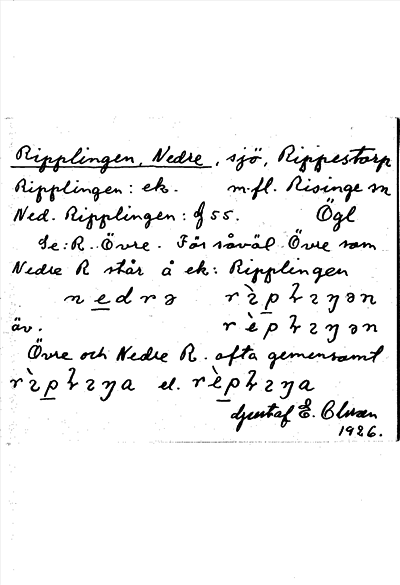 Ripplingen, Nedre, sjö, Rippestorp
Ripplingen: ek. m.fl. Risinge sn
Ned. Ripplingen: f 55. Ögl
Se: R. Övre. För såväl Övre som
Nedre R står å ek: Ripplingen
nedrə
äv.
Övre och Nedre R. ofta gemensamt
el.
Gustaf E. Olsson
1926.